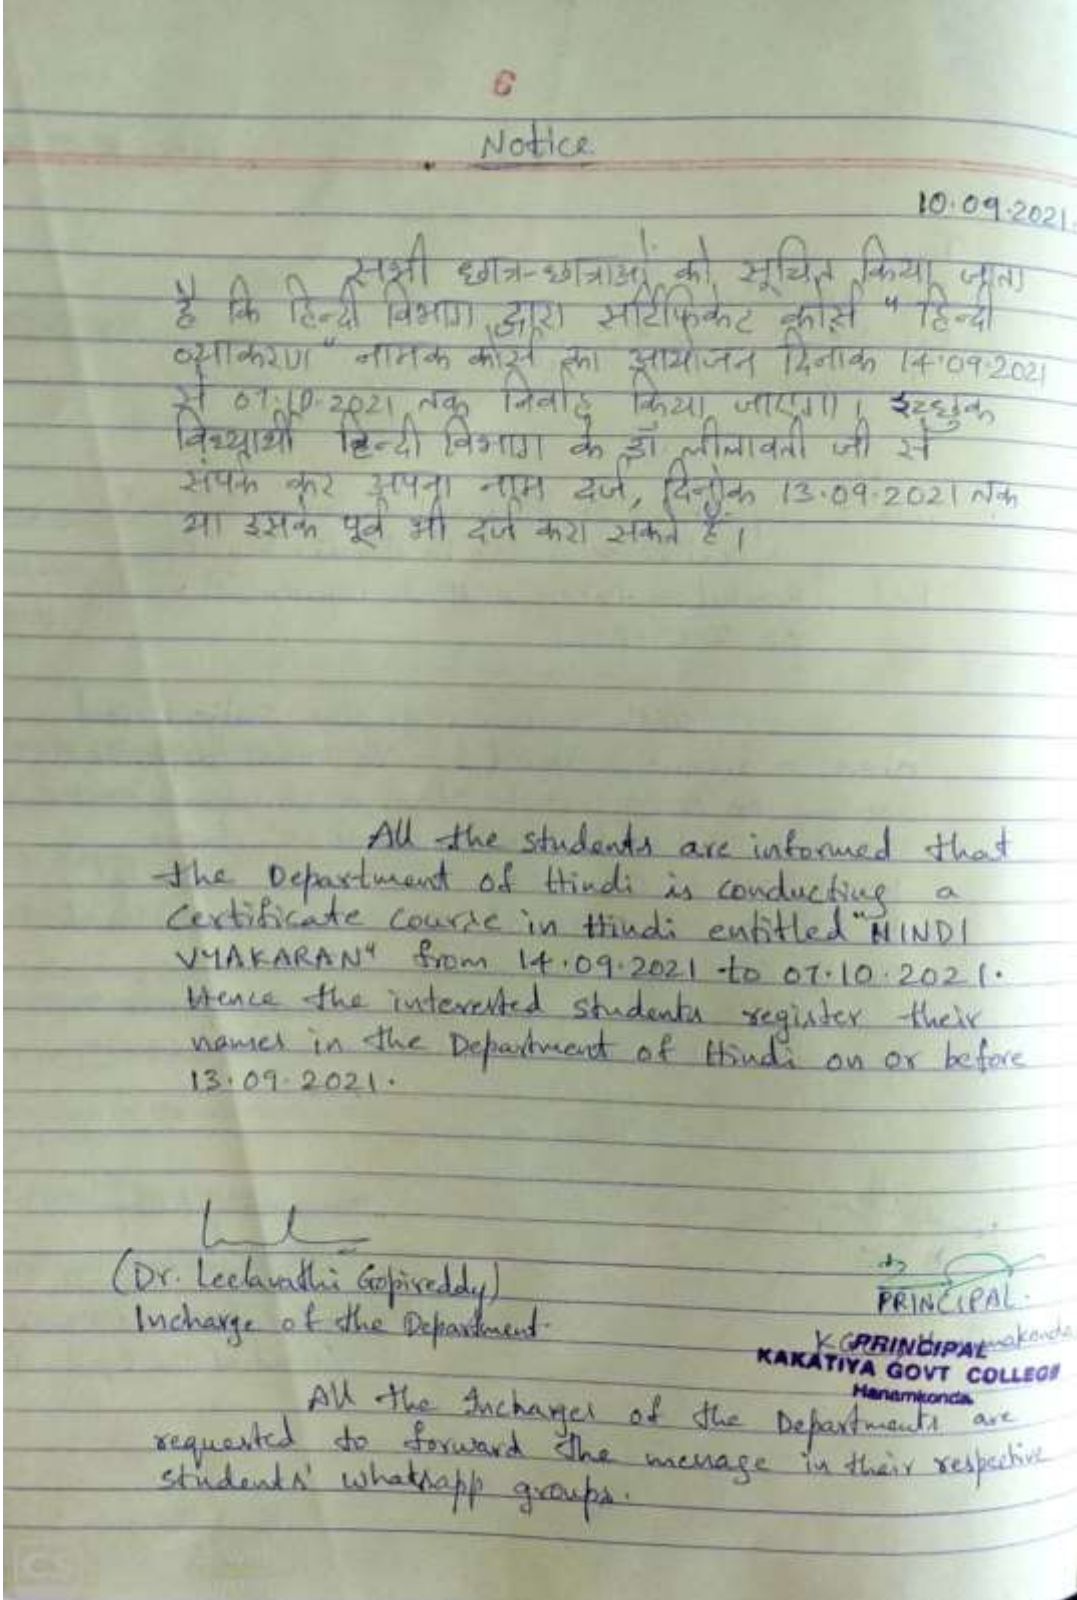 6
Notice
10.09.2021.
सभी छात्र-छात्राओं को सूचित किया जाता
है कि हिन्दी विभाग द्वारा सर्टिफिकेट कोर्स "हिन्दी
व्याकरण" नामक कोर्स का आयोजन दिनांक 14.09.2021
से 07.10.2021 तक निर्वाह किया जाएगा। इच्छुक
विध्यार्थी हिन्दी विभाग के डॉ लीलावती जी से
संपर्क कर अपना नाम दर्ज, दिनांक 13.09.2021 तक
या इसके पूर्व भी दर्ज करा सकते हैं।
All the students are informed that
the Department of Hindi is conducting a
Certificate Course in Hindi entitled "HINDI
VYAKARAN" from 14.09.2021 to 07.10.2021.
Hence the interested students register their
names in the Department of Hindi on or before
13.09.2021.
(Dr. Leelavathi Gopireddy)
Incharge of the Department.
PRINCIPAL.
PRINCIPAL
KAKATIYA GOVT COLLEGE
Hanamkonda
All the Incharges of the Departments are
requested to forward the message in their respective
students' whatsapp groups.
CS